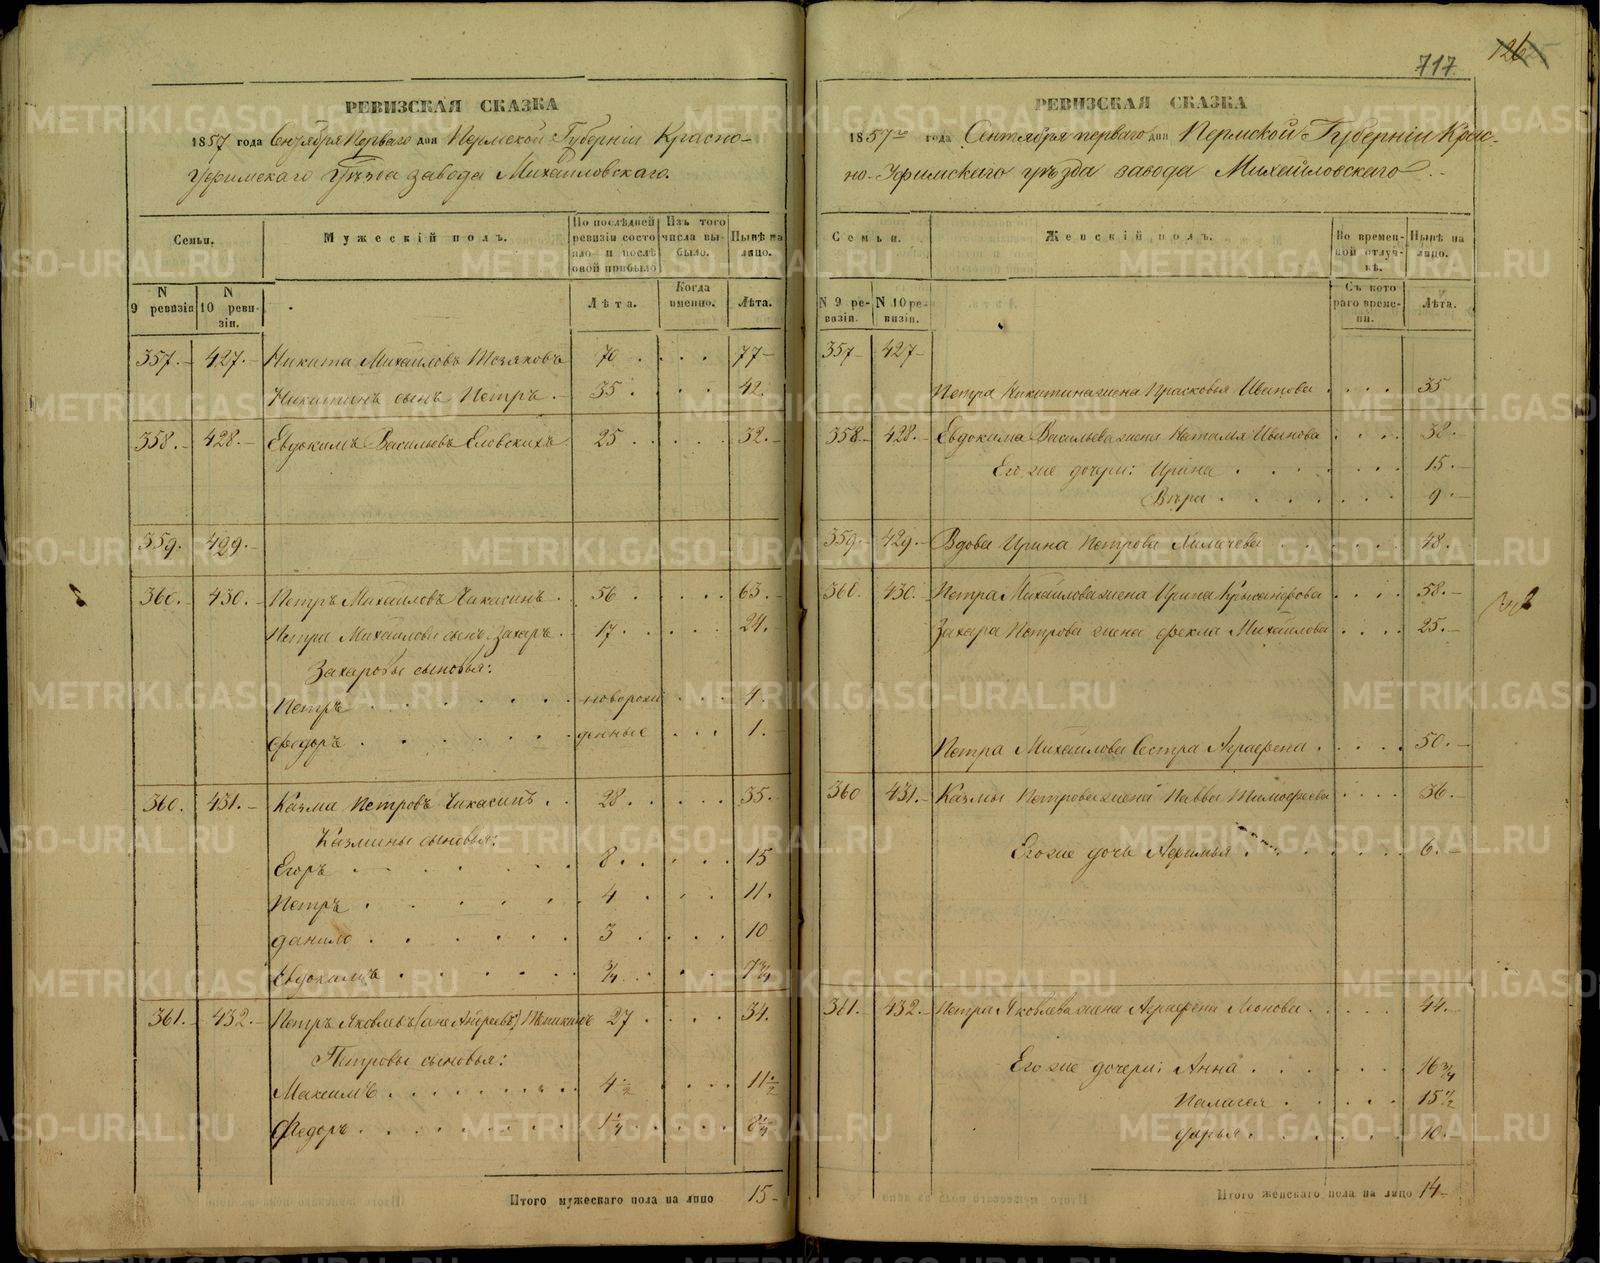 717
126
РЕВИЗСКАЯ СКАЗКА
1857 года Сентября Перваго дня Пермской Губерніи Красно-
Уфимскаго Уѣзда завода Михайловскаго.
Семьи.
Мужескій полъ.
По послѣдней ревизіи состояло и послѣ оной прибыло
Изъ того числа выбыло.
Нынѣ на лицо.
N 9 ревизіи
N 10 ревизіи.
Лѣта.
Когда именно.
Лѣта.
357. 427. Никита Михайловъ 70 77
Никитинъ сынъ Петръ. 35 42.
358. 428. Евдокимъ Васильевъ Еловскихъ 25 32.
359. 429.
360. 430. Петръ Михайловъ Чикасинъ 56 63.
Петра Михайлова сынъ Захаръ 17. 24.
Захаровы сыновья:
Петръ новорож 4.
Федоръ денные 1.
360. 431. Казма Петровъ Чикасинъ 28 35.
Казмины сыновья:
Егоръ 8. 15
Петръ 4 11.
Данило 3 10
Евдокимъ 3/4 7 3/4
361. 432. Петръ Яковлевъ (онже Андреевъ) 27 34.
Петровы сыновья:
Максимъ 4 1/2 11 1/2
Федоръ 1 1/4 8 1/4
Итого мужескаго пола на лицо 15
РЕВИЗСКАЯ СКАЗКА
1857го года Сентября перваго дня Пермской Губерніи Крас-
но-Уфимскаго уѣзда завода Михайловскаго
Семьи.
Женскій полъ.
Во временной отлучкѣ.
Нынѣ на лицо.
N 9 ревизіи.
N 10 ревизіи.
Съ котораго времени.
Лѣта.
357 427
Петра Никитина жена Прасковья Иванова 35
358 428. Евдокима Васильева жена Наталья Иванова 32.
Его же дочери: Ирина 15.
Вѣра 9.
359. 429. Вдова Ирина Петрова 48.
360. 430. Петра Михайлова жена Ирина 58.
Захара Петрова жена Фекла Михайлова 25.
Петра Михайлова Сестра Аграфена 50.
360 431. Казмы Петрова жена Тимофеева 36.
Его же дочь Афимья 6.
361. 432. Петра Яковлева жена Аграфена Леонова 44.
Его же дочери: Анна 16 3/4
Палагея 15 1/2
Дарья 10.
Итого женскаго пола на лицо 14
METRIKI.GASO-URAL.RU